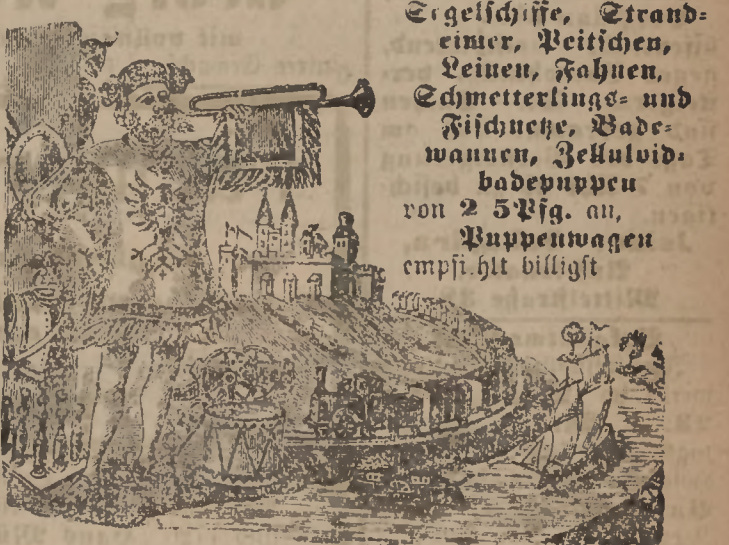 Segelschiffe, Strand=
eimer, Peitschen,
Leinen, Fahnen,
Schmetterlings= und
Fischnetze, Bade=
wannen, Zelluloid=
badepuppen
von 25 Pfg. an,
Puppenwagen
empfiehlt billigst